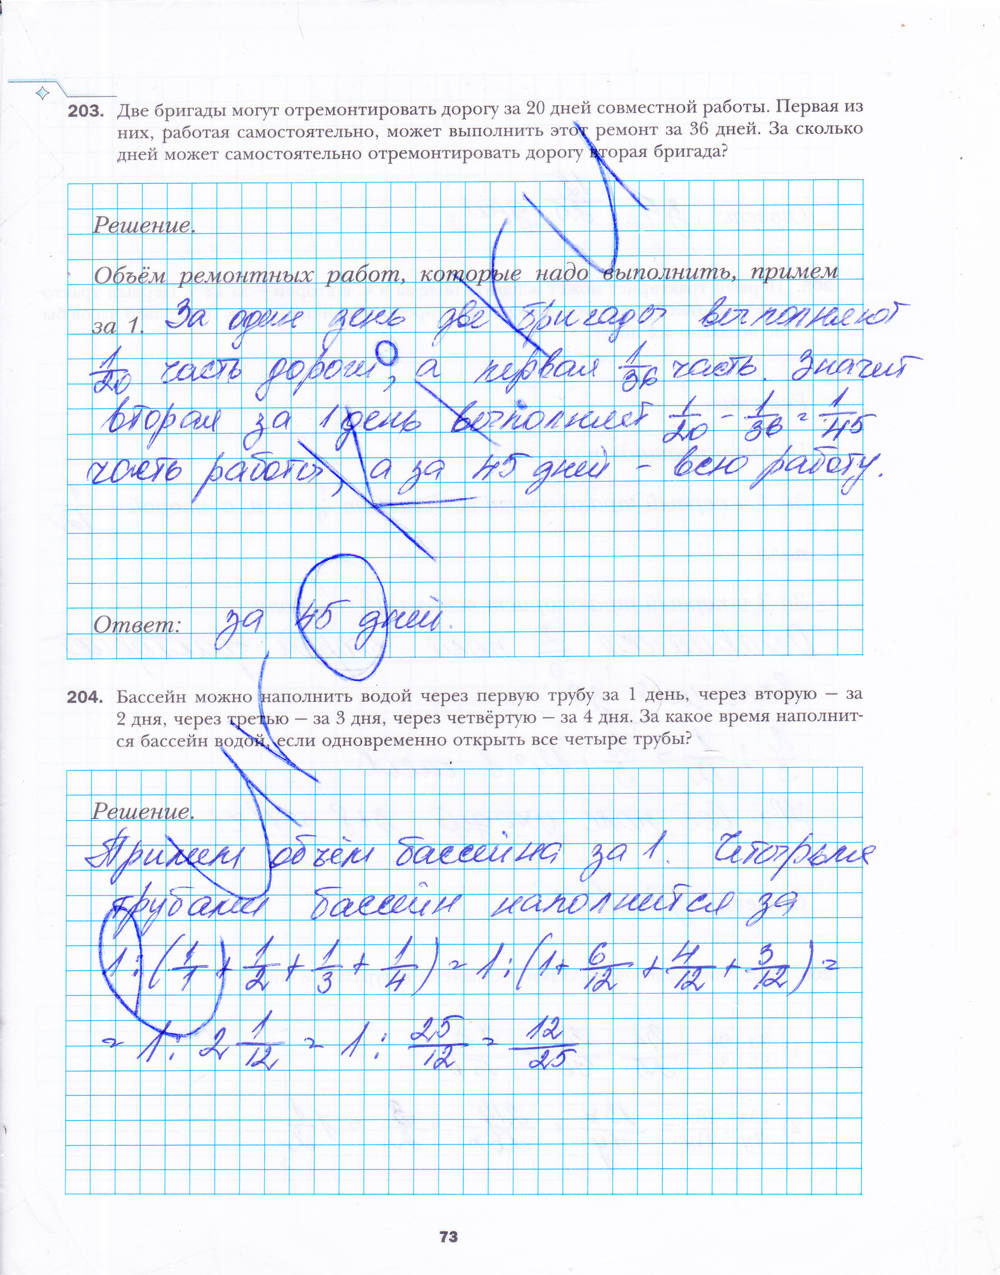 203. Две бригады могут отремонтировать дорогу за 20 дней совместной работы. Первая из
них, работая самостоятельно, может выполнить этот ремонт за 36 дней. За сколько
дней может самостоятельно отремонтировать дорогу вторая бригада?
Решение.
Объём ремонтных работ, которые надо выполнить, примем
за 1. За один день две бригады выполняют
1/20 часть дороги, а первая 1/36 часть. Значит
вторая за 1 день выполняет 1/20 - 1/36 = 1/45
часть работы, а за 45 дней - всю работу.
Ответ: за 45 дней.
204. Бассейн можно наполнить водой через первую трубу за 1 день, через вторую — за
2 дня, через третью — за 3 дня, через четвёртую — за 4 дня. За какое время наполнит-
ся бассейн водой, если одновременно открыть все четыре трубы?
Решение.
Примем объём бассейна за 1. Четырьмя
трубами бассейн наполнится за
1 : (1/1 + 1/2 + 1/3 + 1/4) = 1 : (1 + 6/12 + 4/12 + 3/12) =
= 1 : 2 1/12 = 1 : 25/12 = 12/25
73